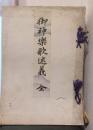 御神樂歌述義 全